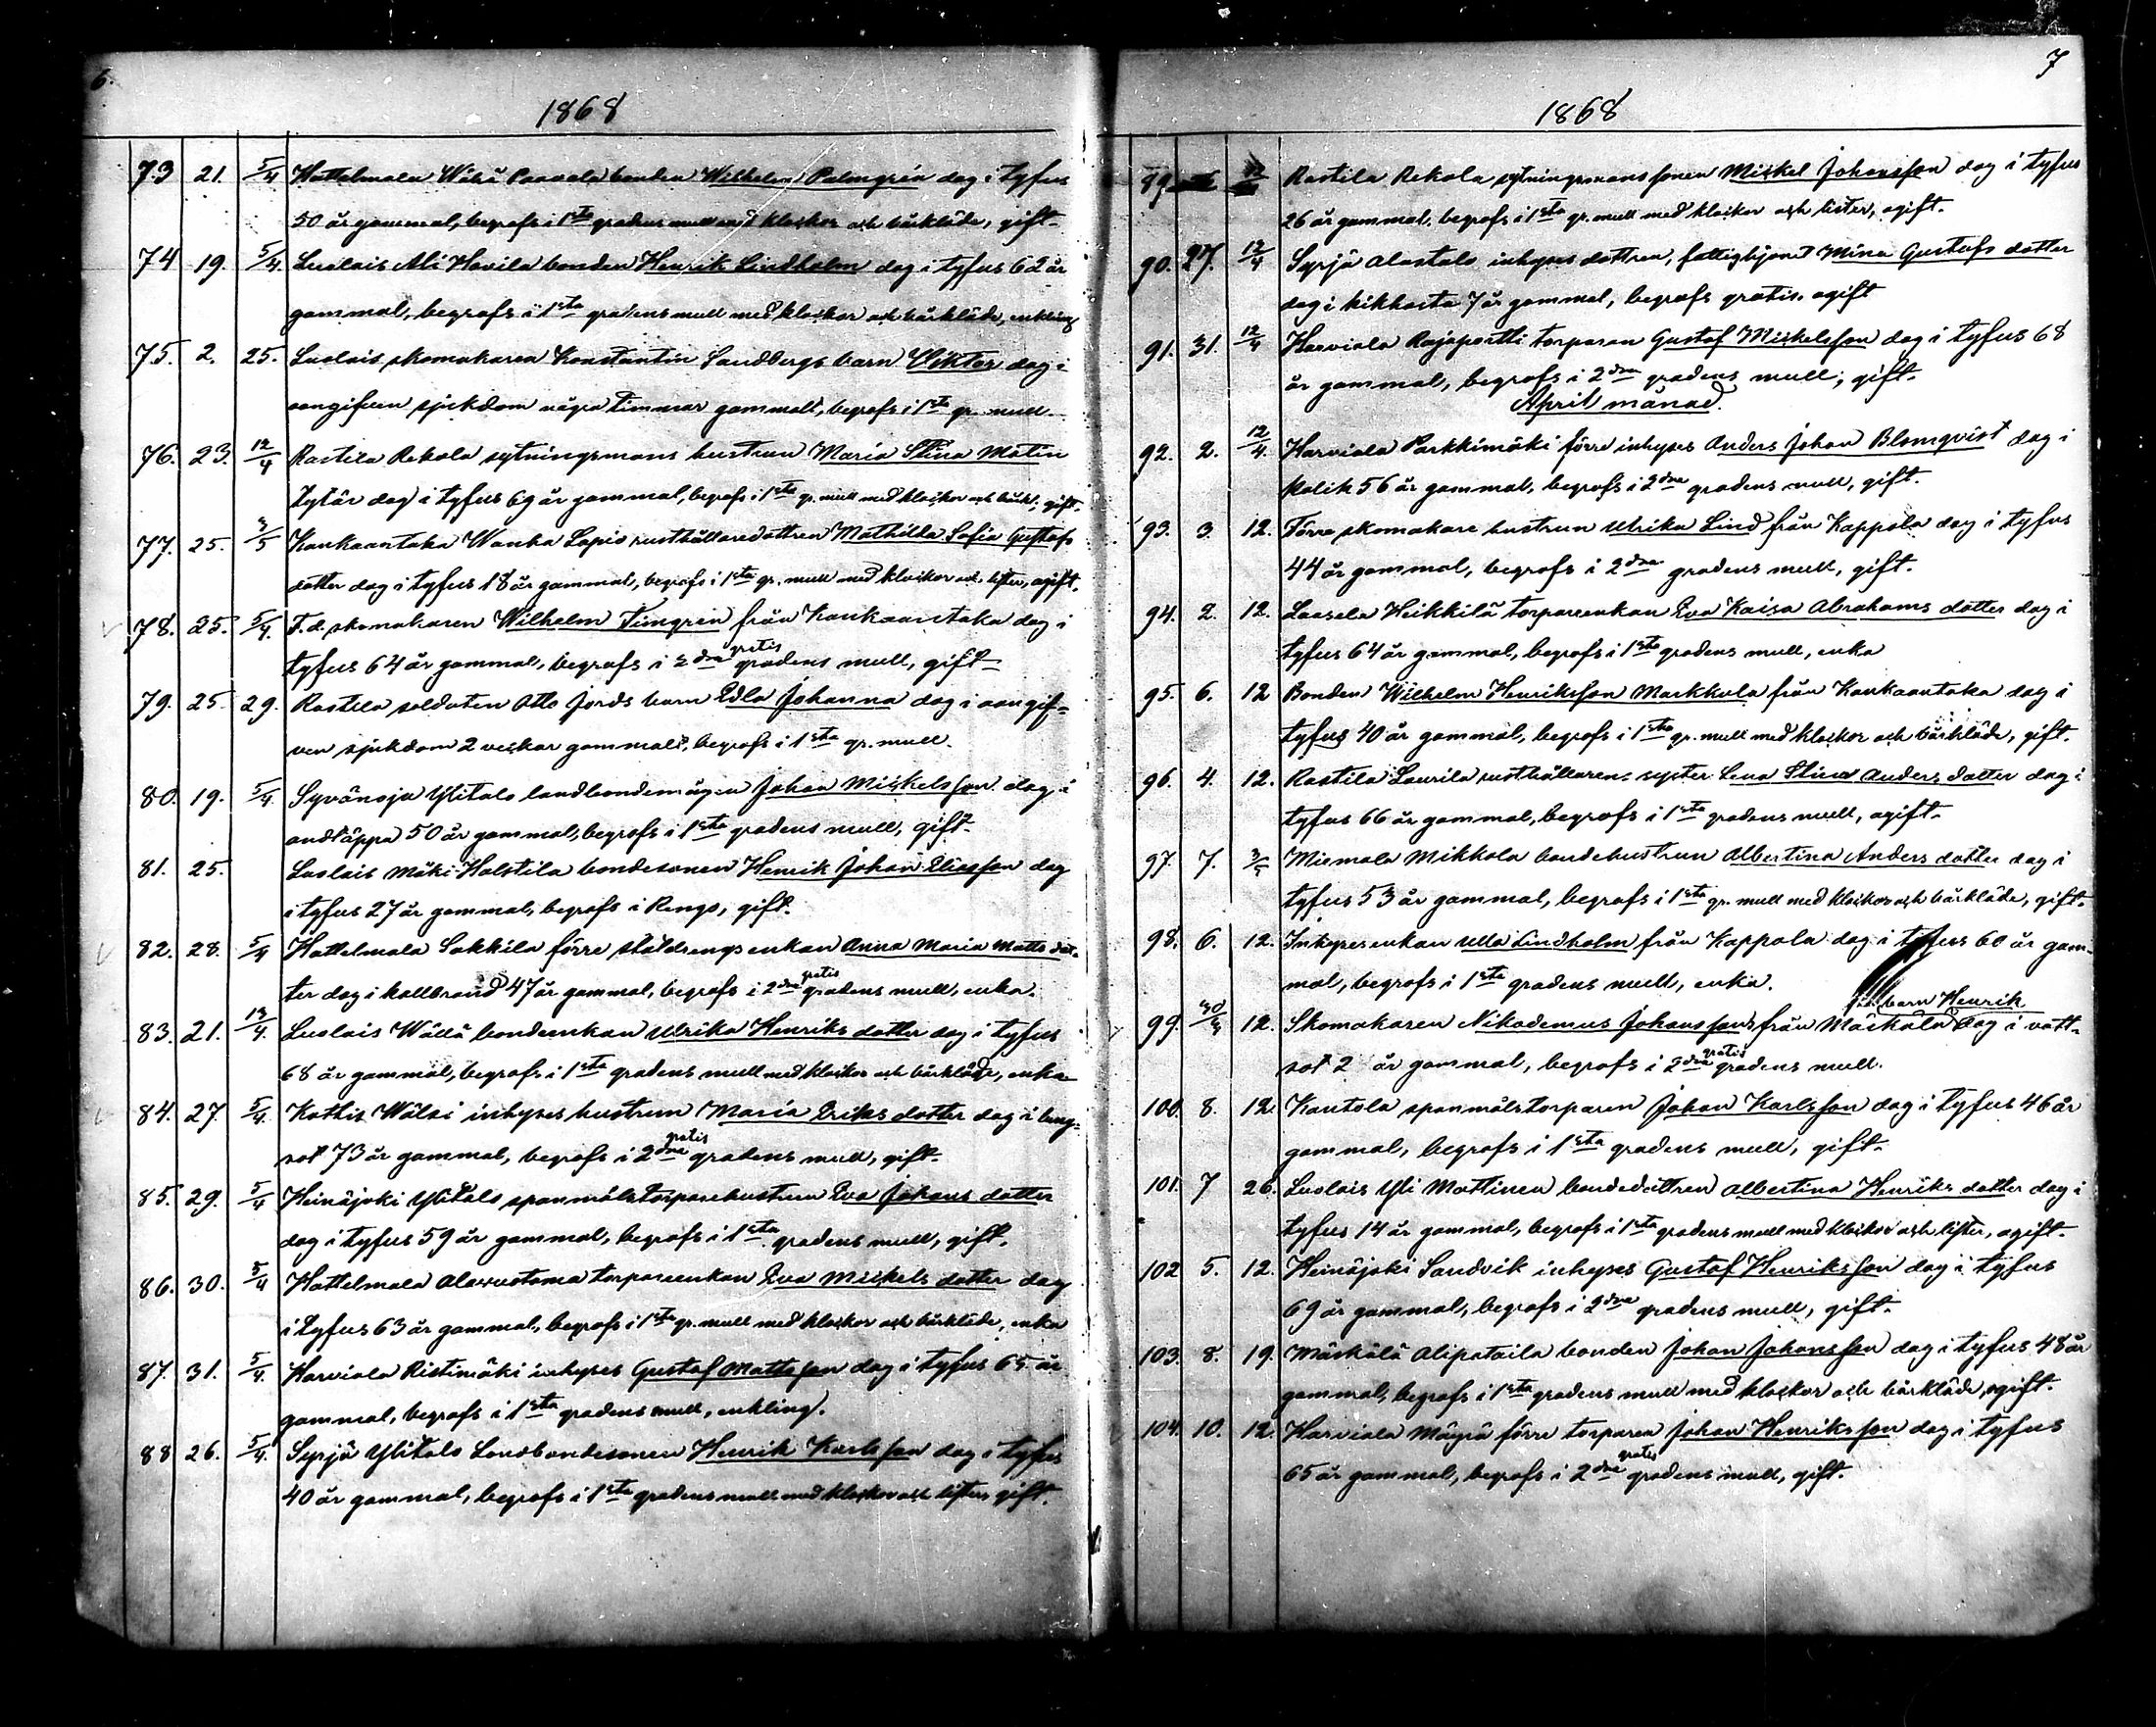 6.
1868
73 21. 5/4 Hattelmala Wähä Paavola bonden Wilhelm Palmgrén dog i tyfus
50 år gammal, begrofs i 1sta gradens mull med klockor och bårkläde, gift.
74 19. 5/4. Luolais Ali Havila bonden Henrik Lindholm dog i tyfus 62 år
gammal, begrofs i 1sta gradens mull med klockor och bårkläde, enkling
75. 2. 25. Luolais skomakaren Konstantin Sandbergs barn Viktor dog i
oangifven sjukdom några timmar gammalt, begrofs i 1sta gr. mull.
76. 23. 12/4 Rastila Rekola sytningsmans hustrun Maria Stina Matin
tytär dog i tyfus 69 år gammal, begrofs i 1sta gr. mull med klockor och bårkl, gift.
77. 25. 3/5 Kankaantaka Wanha Lapio rusthållaredottren Mathilda Sofia Gustafs
dotter dog i tyfus 18 år gammal, begrofs i 1sta gr. mull med klockor och lister, ogift.
78. 25. 5/4. F.d. skomakaren Wilhelm Timgren från Kankaantaka dog i
tyfus 64 år gammal, begrofs i 2dra gratis gradens mull, gift
79. 25. 29. Rastila soldaten Otto Jords barn Edla Johanna dog i oangif-
ven sjukdom 2 veckor gammalt, begrofs i 1sta gr. mull.
80. 19. 5/4. Syvänoja Ylitalo landbondemågen Johan Mickelsson dog i
andtäppa 50 år gammal, begrofs i 1sta gradens mull, gift.
81. 25. Luolais Mäki-Halstila bondesonen Henrik Johan Eliasson dog
i tyfus 27 år gammal, begrofs i Rengo, gift.
82. 28. 5/4 Hattelmala Sakkila förre stalldrengs enkan Anna Maria Matts dot-
ter dog i kallbrand 47 år gammal, begrofs i 2dra gratis gradens mull, enka.
83. 21. 13/4. Luolais Wällä bondeenkan Ulrika Henriks dotter dog i tyfus
68 år gammal, begrofs i 1sta gradens mull med klockor och bårkläde, enka
84. 27. 5/4. Katis Wälsi inhyses hustrun Maria Eriks dotter dog i lung-
sot 73 år gammal, begrofs i 2dra gratis gradens mull, gift.
85. 29. 5/4 Heinäjoki Ylitalo spanmålstorparehustrun Eva Johans dotter
dog i tyfus 59 år gammal, begrofs i 1sta gradens mull, gift.
86. 30. 5/4 Hattelmala torpareenkan Eva Mickels dotter dog
i tyfus 63 år gammal, begrofs i 1sta gr. mull med klockor och bårkläde, enka
87. 31. 5/4. Harviala Ristimäki inhyses Gustaf Mattsson dog i tyfus 65 år
gammal, begrofs i 1sta gradens mull, enkling.
88 26. 5/4. Syrjä Ylitalo Landbondesonen Henrik Karlsson dog i tyfus
40 år gammal, begrofs i 1sta gradens mull med klockor och lister, gift.
7
1868
89 12 Rastila Rekola sytningsmans sonen Mickel Johansson dog i tyfus
26 år gammal, begrofs i 1sta gr. mull med klockor och lister, ogift.
90. 27. 12/4 Syrjä Alastalo inhyses dottren, fattighjonet Mina Gustafs dotter
dog i kikhosta 7 år gammal, begrofs gratis, ogift
91. 31. 12/4 Harviala Rajaportti torparen Gustaf Mickelsson dog i tyfus 68
år gammal, begrofs i 2dra gradens mull, gift.
April månad.
92. 2. 12/4. Harviala Parkkimäki förre inhyses Anders Johan Blomqvist dog i
kolik 56 år gammal, begrofs i 2dra gradens mull, gift.
93. 3. 12. Förre skomakare hustrun Ulrika Lind från Kappola dog i tyfus
44 år gammal, begrofs i 2dra gradens mull, gift.
94. 2. 12. Loasela Heikkilä torpareenkan Eva Kaisa Abrahams dotter dog i
tyfus 64 år gammal, begrofs i 1sta gradens mull, enka
95. 6. 12 Bonden Wilhelm Henriksson Markkula från Kankaantaka dog i
tyfus 40 år gammal, begrofs i 1sta gr. mull med klockor och bårkläde, gift.
96. 4. 12. Rastila Laurila rusthållarens syster Lena Stina Anders dotter dog i
tyfus 66 år gammal, begrofs i 1sta gradens mull, ogift.
97. 7. 3/5 Miemala Mikkola bondehustrun Albertina Anders dotter dog i
tyfus 53 år gammal, begrofs i 1sta gr. mull med klockor och bårkläde, gift.
98. 6. 12. Inhyses enkan Ulla Lindholm från Kappola dog i tyfus 60 år gam-
mal, begrofs i 1sta gradens mull, enka.
barn Henrik
99. 12. Skomakaren Nikodemus Johanssons från Mäskälä dog i vatt-
sot 2 år gammal, begrofs i 2dra gratis gradens mull.
100. 8. 12. Kantola spanmålstorparen Johan Karlsson dog i tyfus 46 år
gammal, begrofs i 1sta gradens mull, gift.
101. 7 26. Luolais Yli Mattinen bondedottren Albertina Henriks dotter dog i
tyfus 14 år gammal, begrofs i 1sta gradens mull med klockor och lister, ogift.
102 5. 12. Heinäjoki Sandvik inhyses Gustaf Henriksson dog i tyfus
69 år gammal, begrofs i 2dra gradens mull, gift.
103. 8. 19. Mäskälä Alipataila bonden Johan Johansson dog i tyfus 48 år
gammal, begrofs i 1sta gradens mull med klockor och bårkläde, ogift.
104. 10. 12. Harviala Mäyrä förre torparen Johan Henriksson dog i tyfus
65 år gammal, begrofs i 2dra gratis gradens mull, gift.